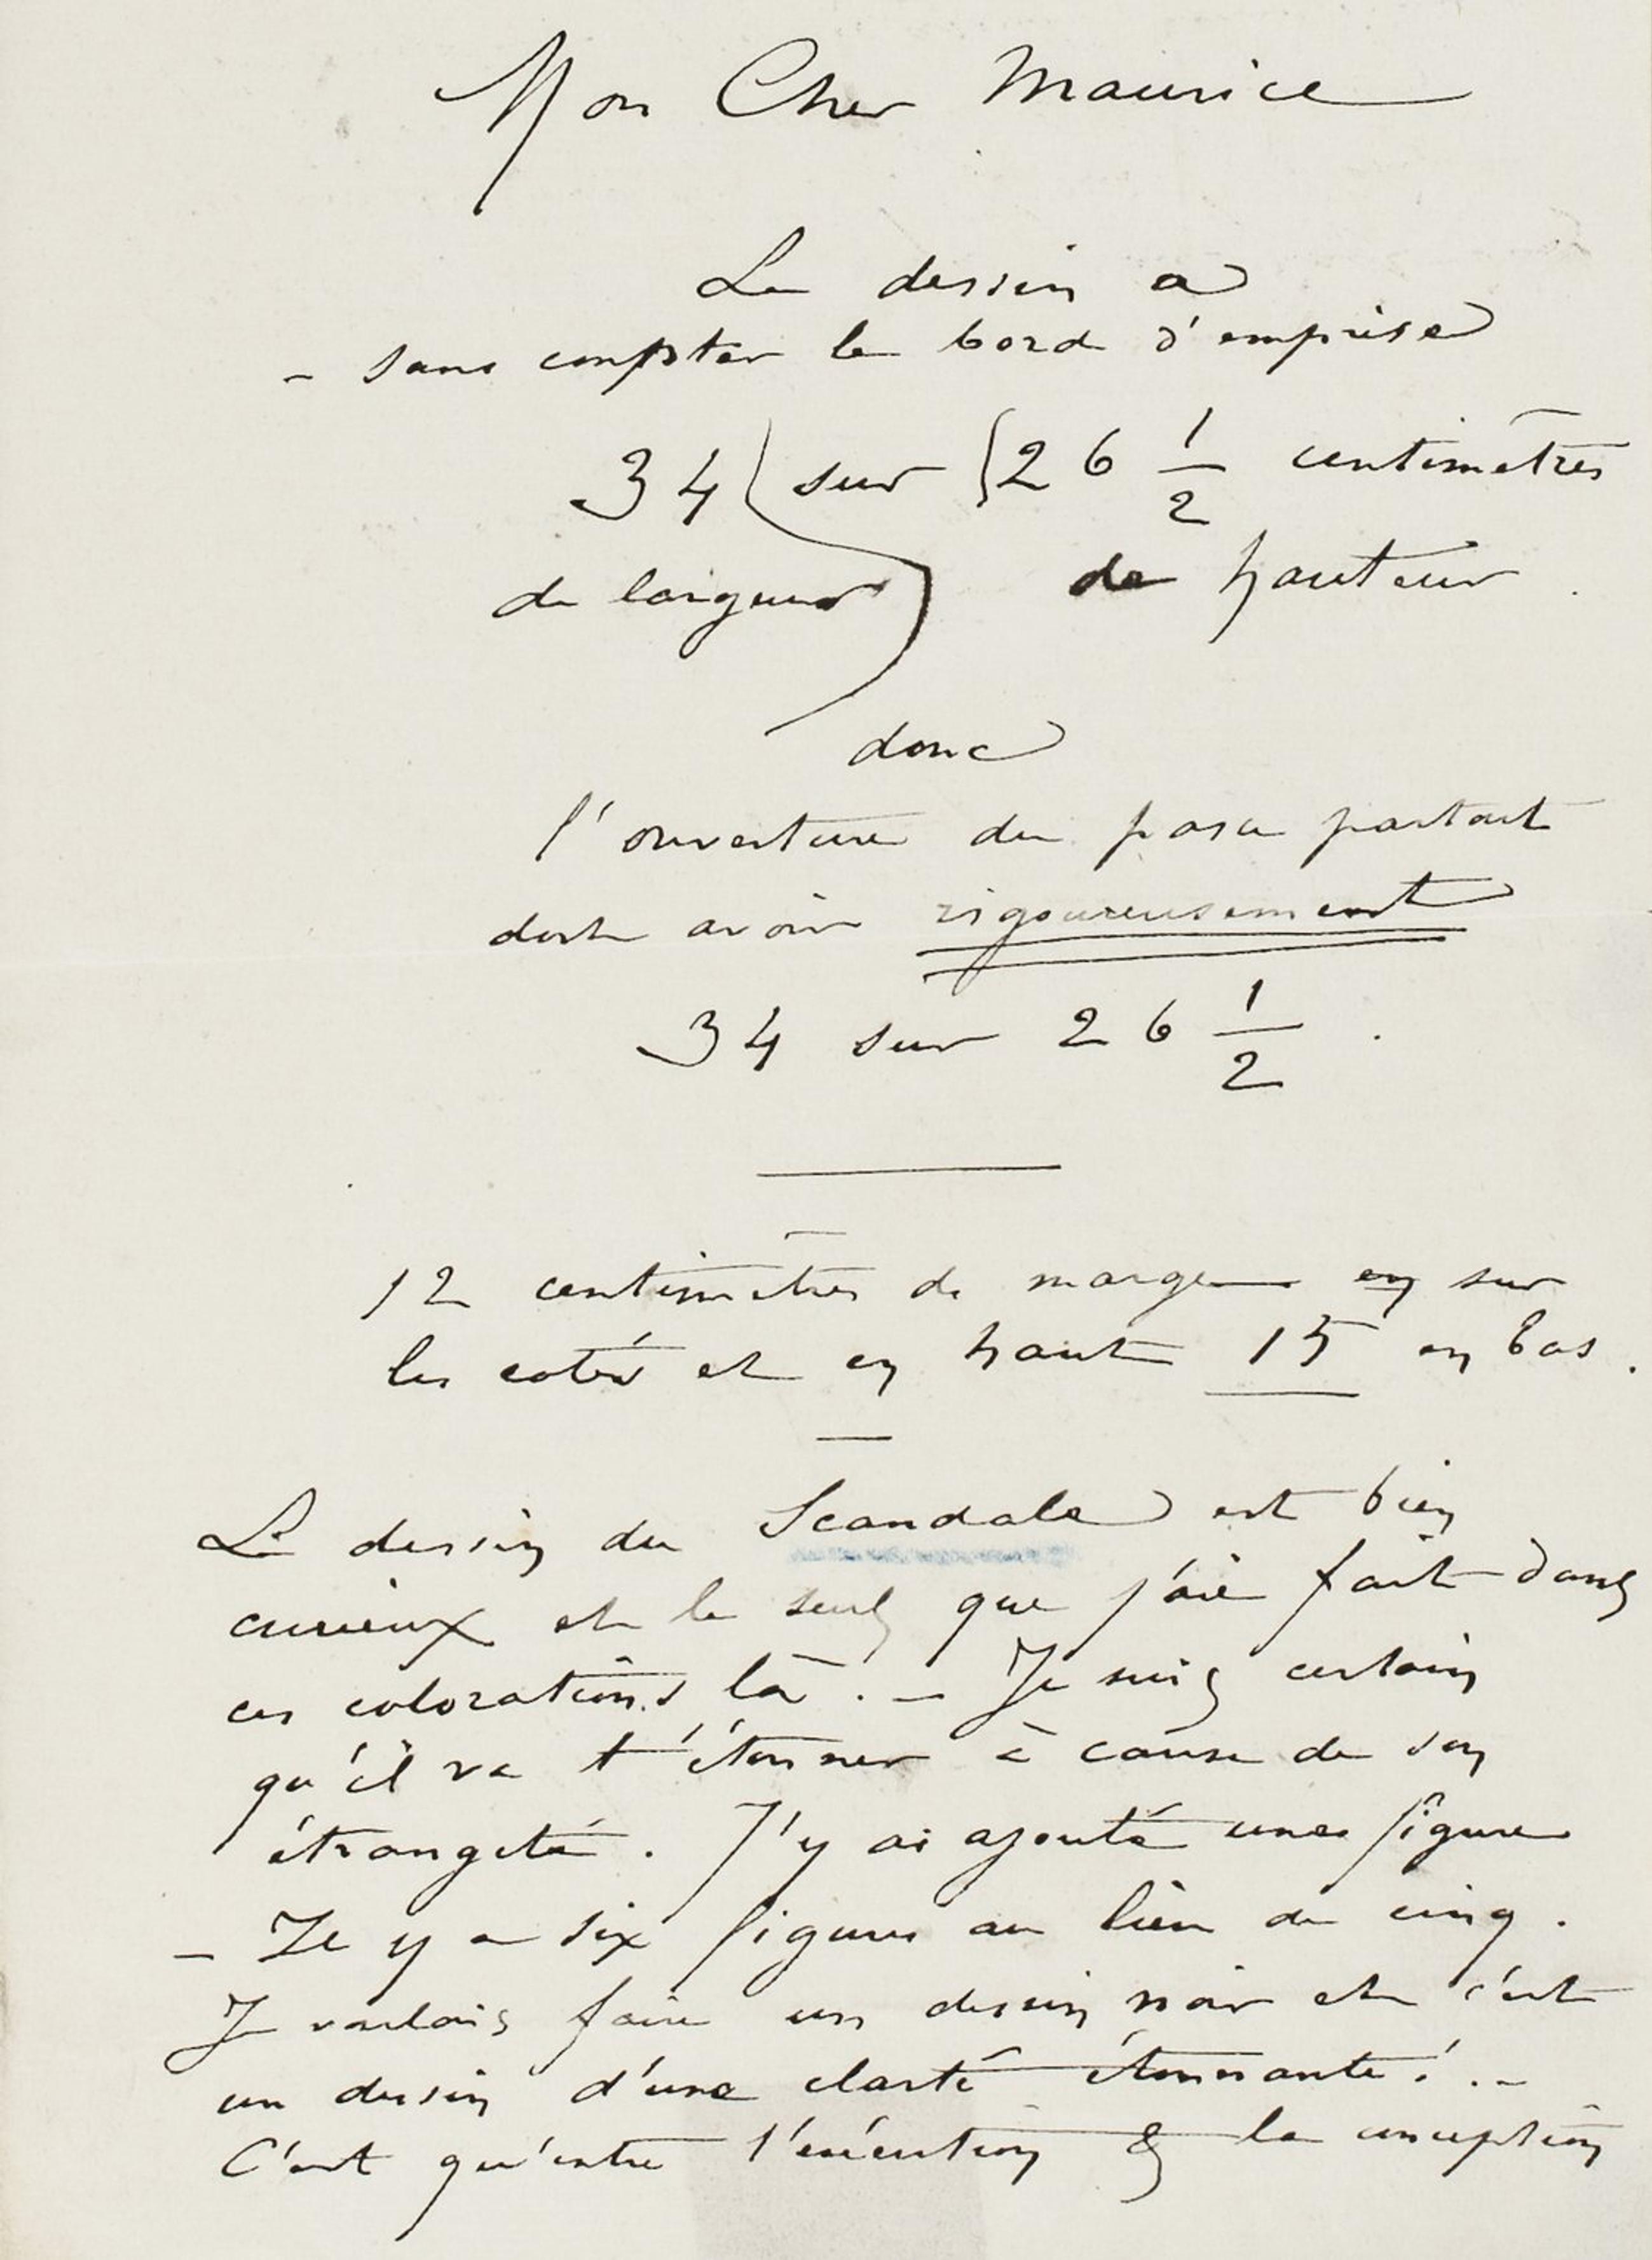 Mon Cher Maurice
Le dessin a
- sans compter le bord d'emprise
34 sur 26 1/2 centimètres
de largeur de hauteur
donc
l'ouverture du passe partout
doit avoir rigoureusement
34 sur 26 1/2.
12 centimètres de marge en sur
les cotés et en haut 15 en bas.
Le dessin du Scandale est bien
curieux et le seul que j'aie fait dans
ces colorations là. - Je suis certain
qu'il va t'étonner à cause de son
étrangeté. J'y ai ajouté une figure
- Il y a six figures au lieu de cinq.
Je voulais faire un dessin noir et c'est
un dessin d'une clarté étonnante! . -
C'est qu'entre l'exécution & la conception